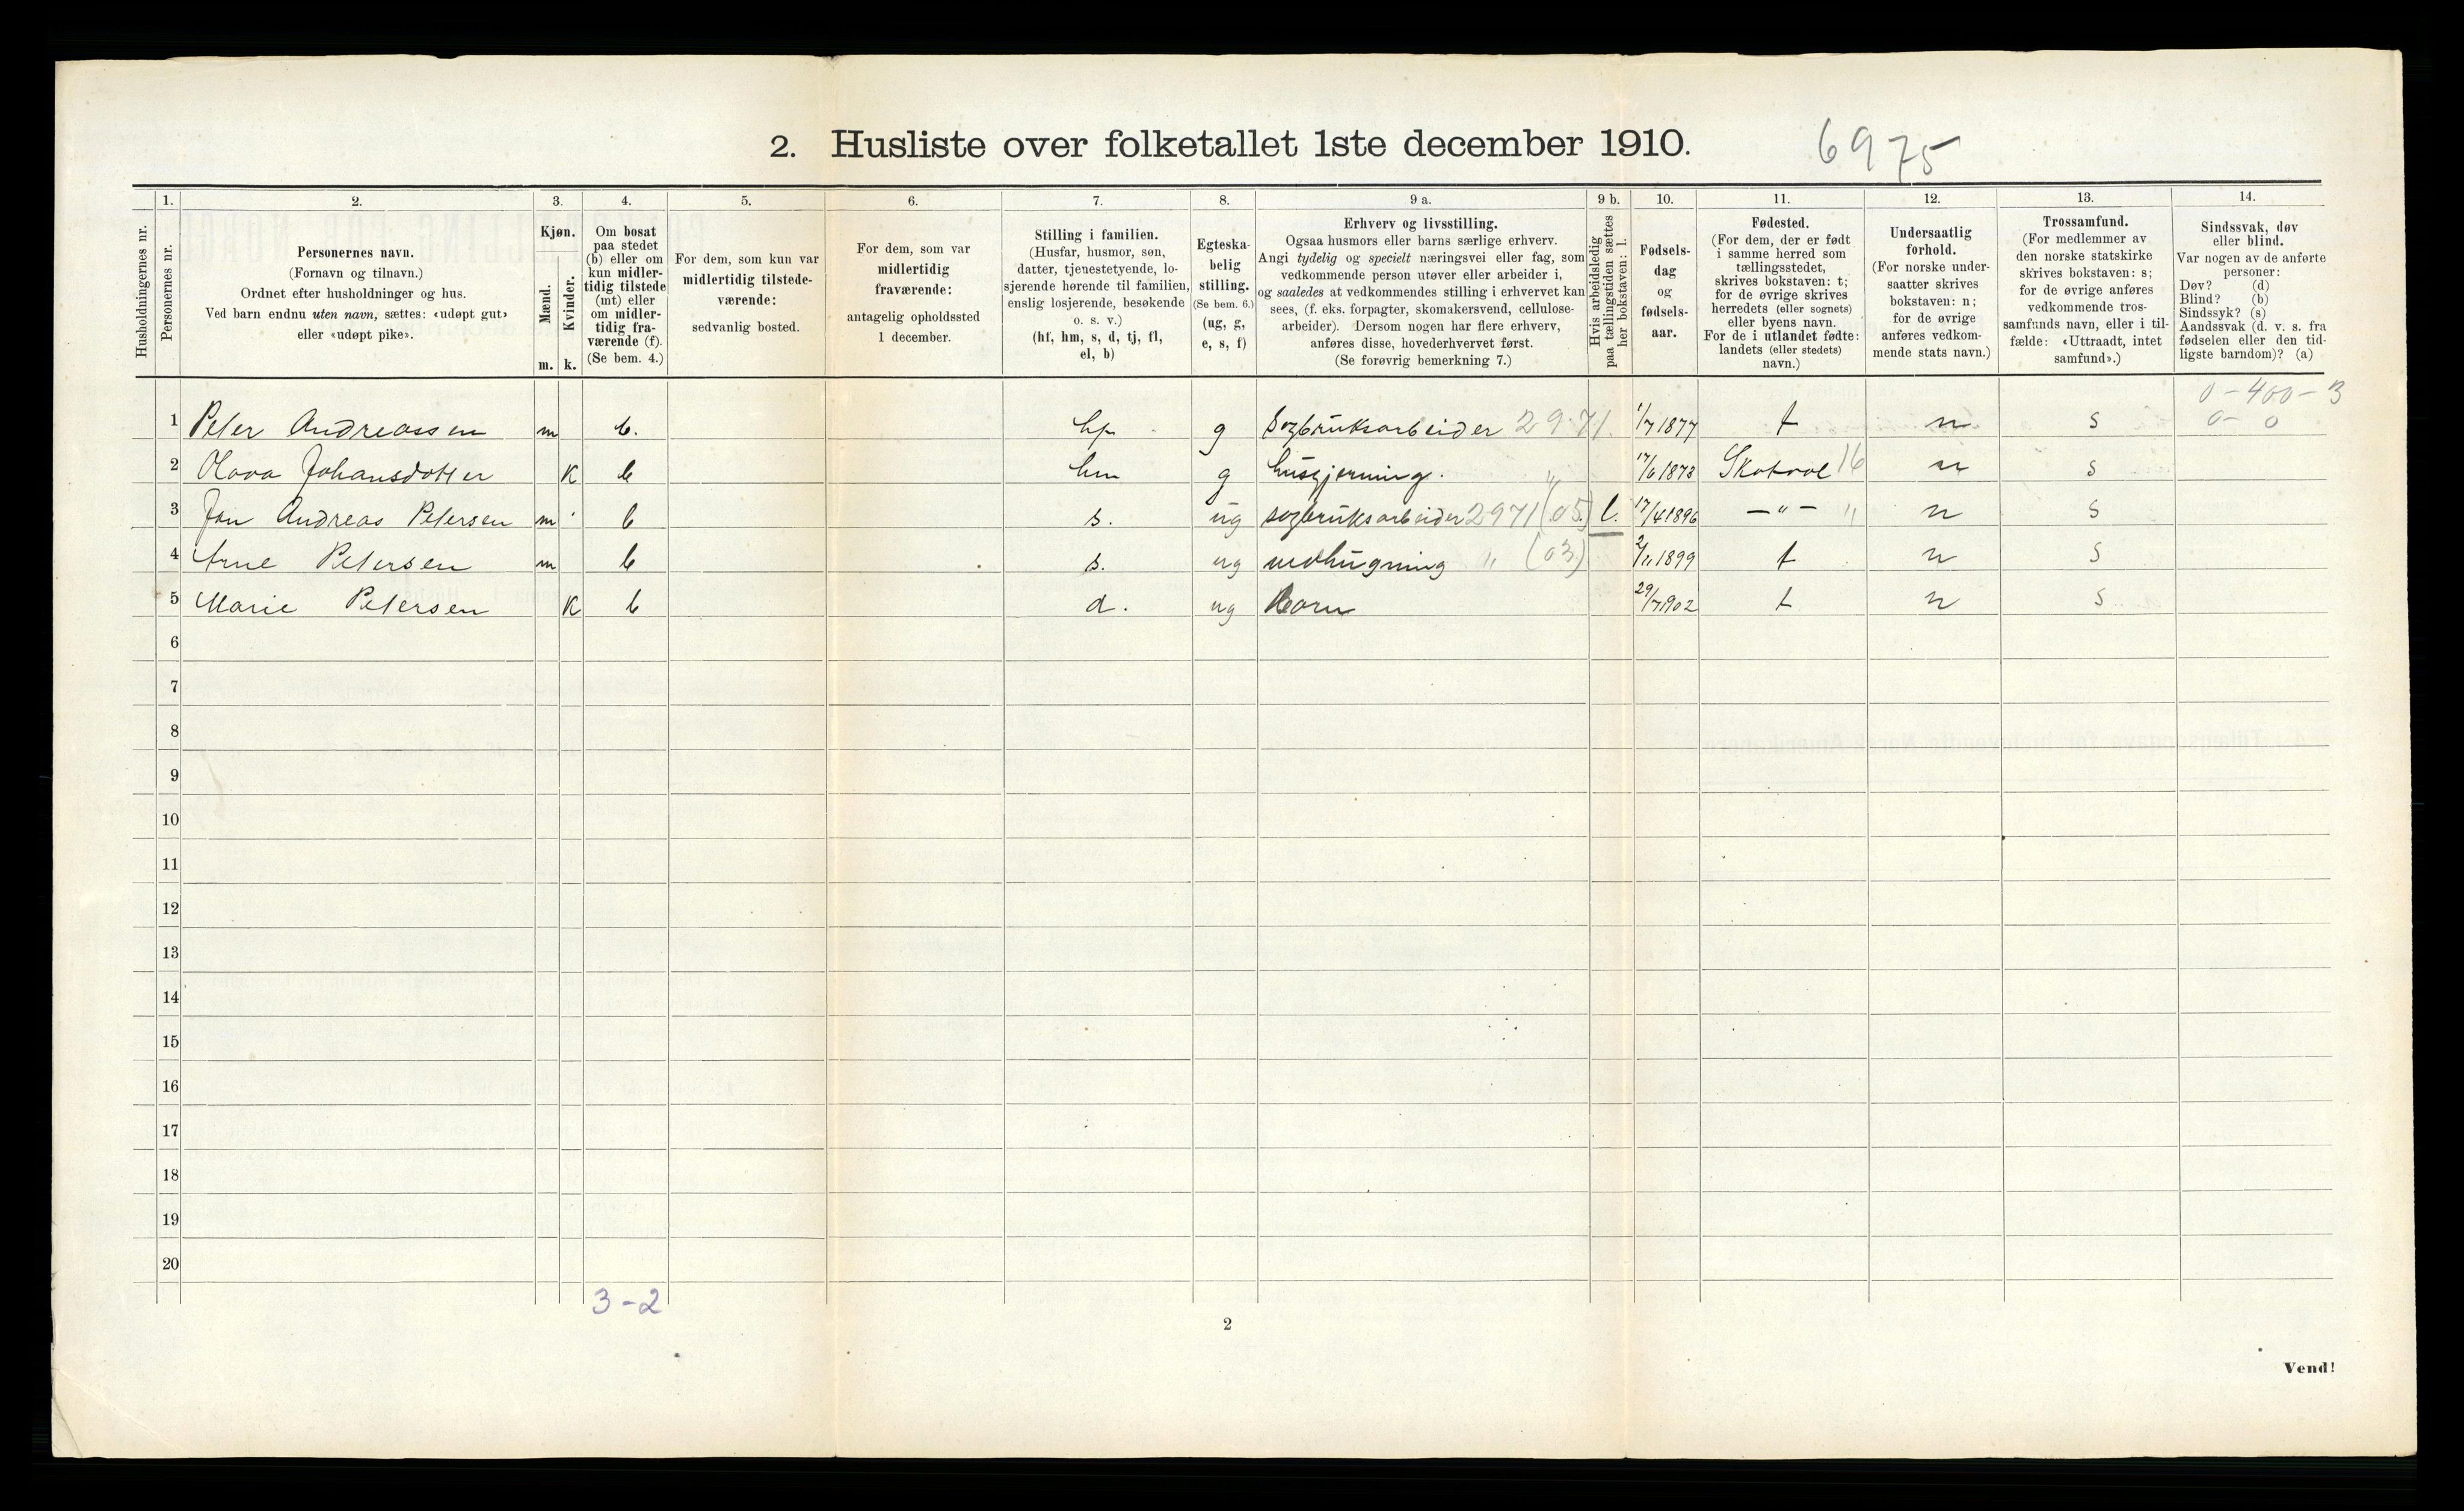 2. Husliste over folketallet 1ste december 1910.
6975
Husholdningernes nr.
1.
Personernes nr.
2.
Personernes navn.
(Fornavn og tilnavn.)
Ordnet efter husholdninger og hus.
Ved barn endnu uten navn, sættes: «udøpt gut»
eller «udøpt pike».
3.
Kjøn.
Mænd.
Kvinder.
m. k.
4.
Om bosat
paa stedet
(b) eller om
kun midler-
tidig tilstede
(mt) eller
om midler-
tidig fra-
værende (f).
(Se bem. 4.)
5.
For dem, som kun var
midlertidig tilstede-
værende:
sedvanlig bosted.
6.
For dem, som var
midlertidig
fraværende:
antagelig opholdssted
1 december.
7.
Stilling i familien.
(Husfar, husmor, søn,
datter, tjenestetyende, lo-
sjerende hørende til familien,
enslig losjerende, besøkende
o. s. v.)
(hf, hm, s, d, tj, fl,
el, b)
8.
Egteska-
belig
stilling.
(Se bem. 6.)
(ug, g,
e, s, f)
9 a.
Erhverv og livsstilling.
Ogsaa husmors eller barns særlige erhverv.
Angi tydelig og specielt næringsvei eller fag, som
vedkommende person utøver eller arbeider i,
og saaledes at vedkommendes stilling i erhvervet kan
sees, (f. eks. forpagter, skomakersvend, cellulose-
arbeider). Dersom nogen har flere erhverv,
anføres disse, hovederhvervet først.
(Se forøvrig bemerkning 7.)
9 b.
Hvis arbeidsledig
paa tællingstiden sættes
her bokstaven: l.
10.
Fødsels-
dag
og
fødsels-
aar.
11.
Fødested.
(For dem, der er født
i samme herred som
tællingsstedet,
skrives bokstaven: t;
for de øvrige skrives
herredets (eller sognets)
eller byens navn.
For de i utlandet fødte:
landets (eller stedets)
navn.)
12.
Undersaatlig
forhold.
(For norske under-
saatter skrives
bokstaven: n;
for de øvrige
anføres vedkom-
mende stats navn.)
13.
Trossamfund.
(For medlemmer av
den norske statskirke
skrives bokstaven: s;
for de øvrige anføres
vedkommende tros-
samfunds navn, eller i til-
fælde: «Uttraadt, intet
samfund».)
14.
Sindssvak, døv
eller blind.
Var nogen av de anførte
personer:
Døv? (d)
Blind? (b)
Sindssyk? (s)
Aandssvak (d. v. s. fra
fødselen eller den tid-
ligste barndom)? (a)
0 - 400 - 3
1 Peter Andreassen m b. hf g sagbruksarbeider 2971. 1/7 1877 t n s 0 - 0
2 Johansdotter k b hm g husgjerning. " 17/6 1873 16 n s
3 Jon Andreas Petersen m b s. ug sagbruksarbeider 2971 (05) l. 17/4 1896 — " — " n s
4 Arne Petersen m b s. ug vedhugning " (03) 2/11 1899 t n s
5 Marie Petersen k b d. ug Barn 29/7 1902 t n s
6
7
8
9
10
11
12
13
14
15
16
17
18
19
20
3 - 2
2
Vend!